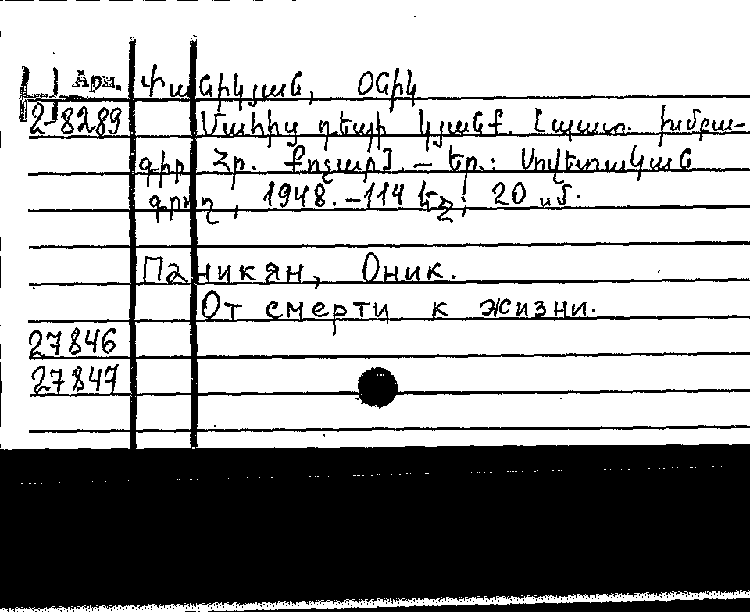 Арм. Փանիկյան, Օնիկ
2-8289 Մահից դեպի կյանք. [Պատ. խմբա-
գիր Հր. Քոչար]. – Եր.: Սովետական
գրող, 1948. – 114 էջ; 20 սմ.
Паникян, Оник.
От смерти к жизни.
27846
27847